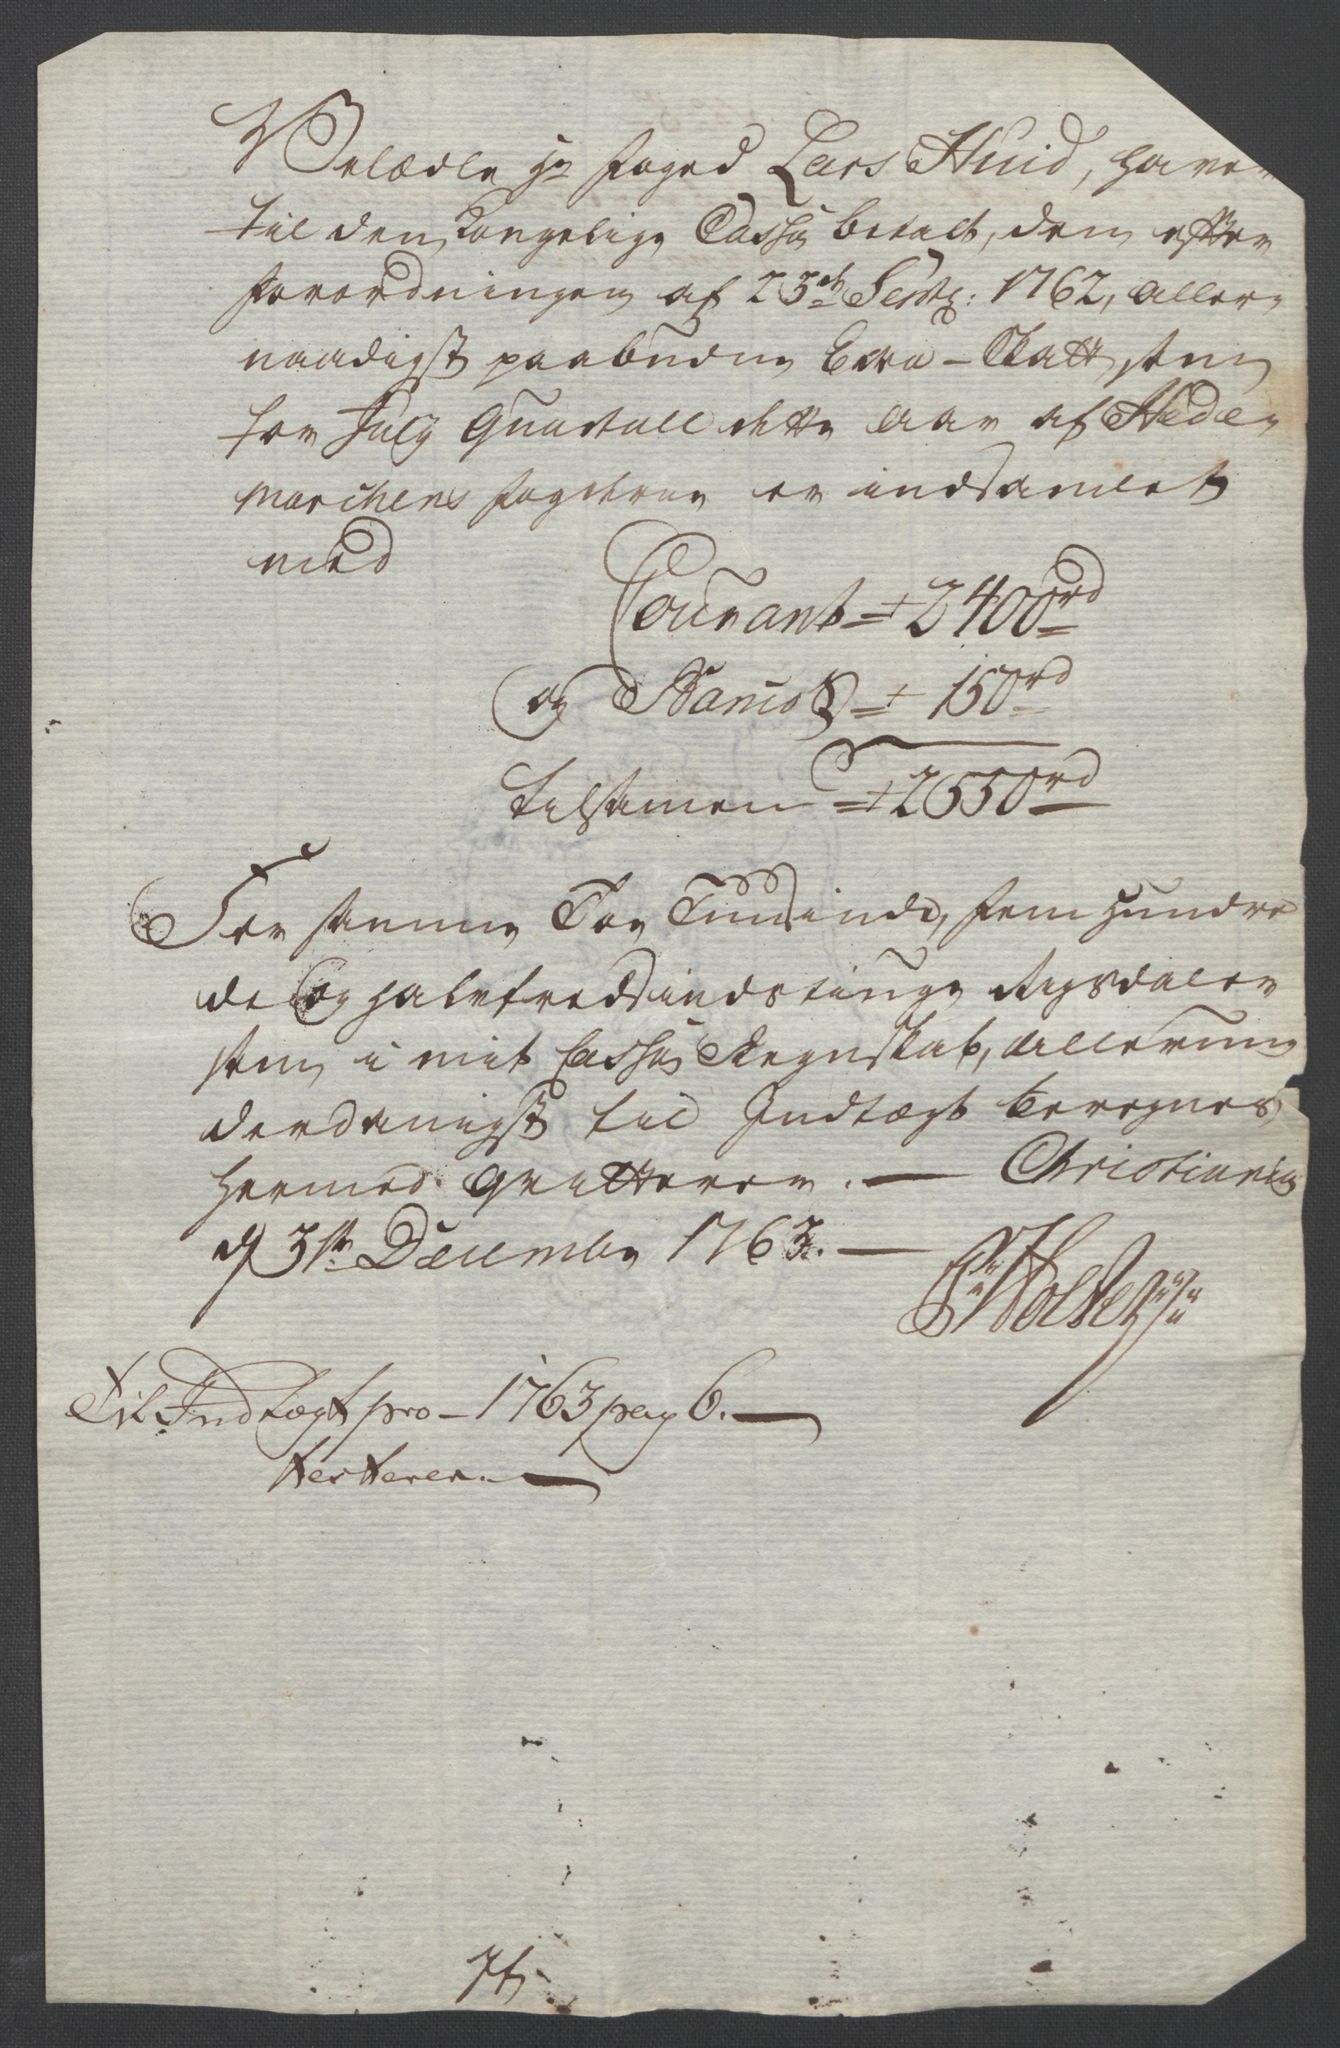 Velædle Hr Foged Lars Huid, haver
til den Kongelige Cassa betalt, den efter
Forordningen af 23de Septbr: 1762, aller-
naadigst paabudne Extra-Skatt, som
for July Quartall dette Aar af Hede-
marchens Fogderie er indsamlet
med
Courant = 2400rd
og Banco = 150rd
tilsamen = 2550rd
For samme Toe Tusinde, fem hundre-
de og halvtredsindstiuge Rigsdaler
som i mit Cassa Regnskab, allerun-
derdanigst til Indtægt beregnes,
hermed qvitterer. — Christiania
d 3die December 1763. —
Til Indtægt pro 1763 pag 6. —
testerer. —